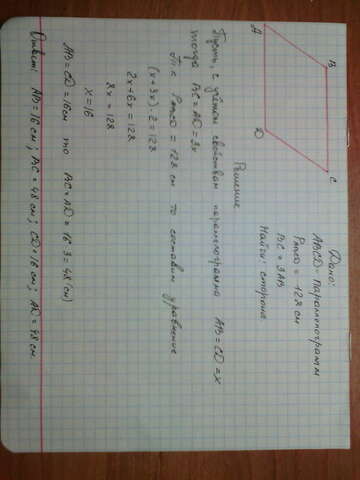 A
B
C
D
Дано:
ABCD - параллелограмм
P ABCD = 128 см
BC = 3AB
Найти: стороны
Решение
Пусть, с учётом свойства параллелограмма AB = CD = x
тогда BC = AD = 3x
Т.к. P ABCD = 128 см то составим уравнение
(x+3x)·2=128
2x+6x=128
8x = 128
x=16
AB = CD = 16см то BC = AD = 16·3=48(см)
Ответ: AB=16 см; BC=48 см; CD=16 см; AD=48 см.